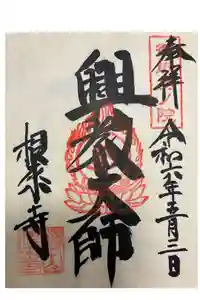 奉拝
令和六年五月二日
興教大師
根来寺